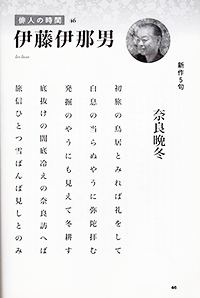 俳人の時間 16
伊藤伊那男
Ito Inao
新作5句
奈良晩冬
初旅の鳥居とみれば礼をして
白息の当らぬやうに弥陀拝む
発掘のやうにも見えて冬耕す
底抜けの闇底冷えの奈良訪へば
旅信ひとつ雪ばんば見しとのみ